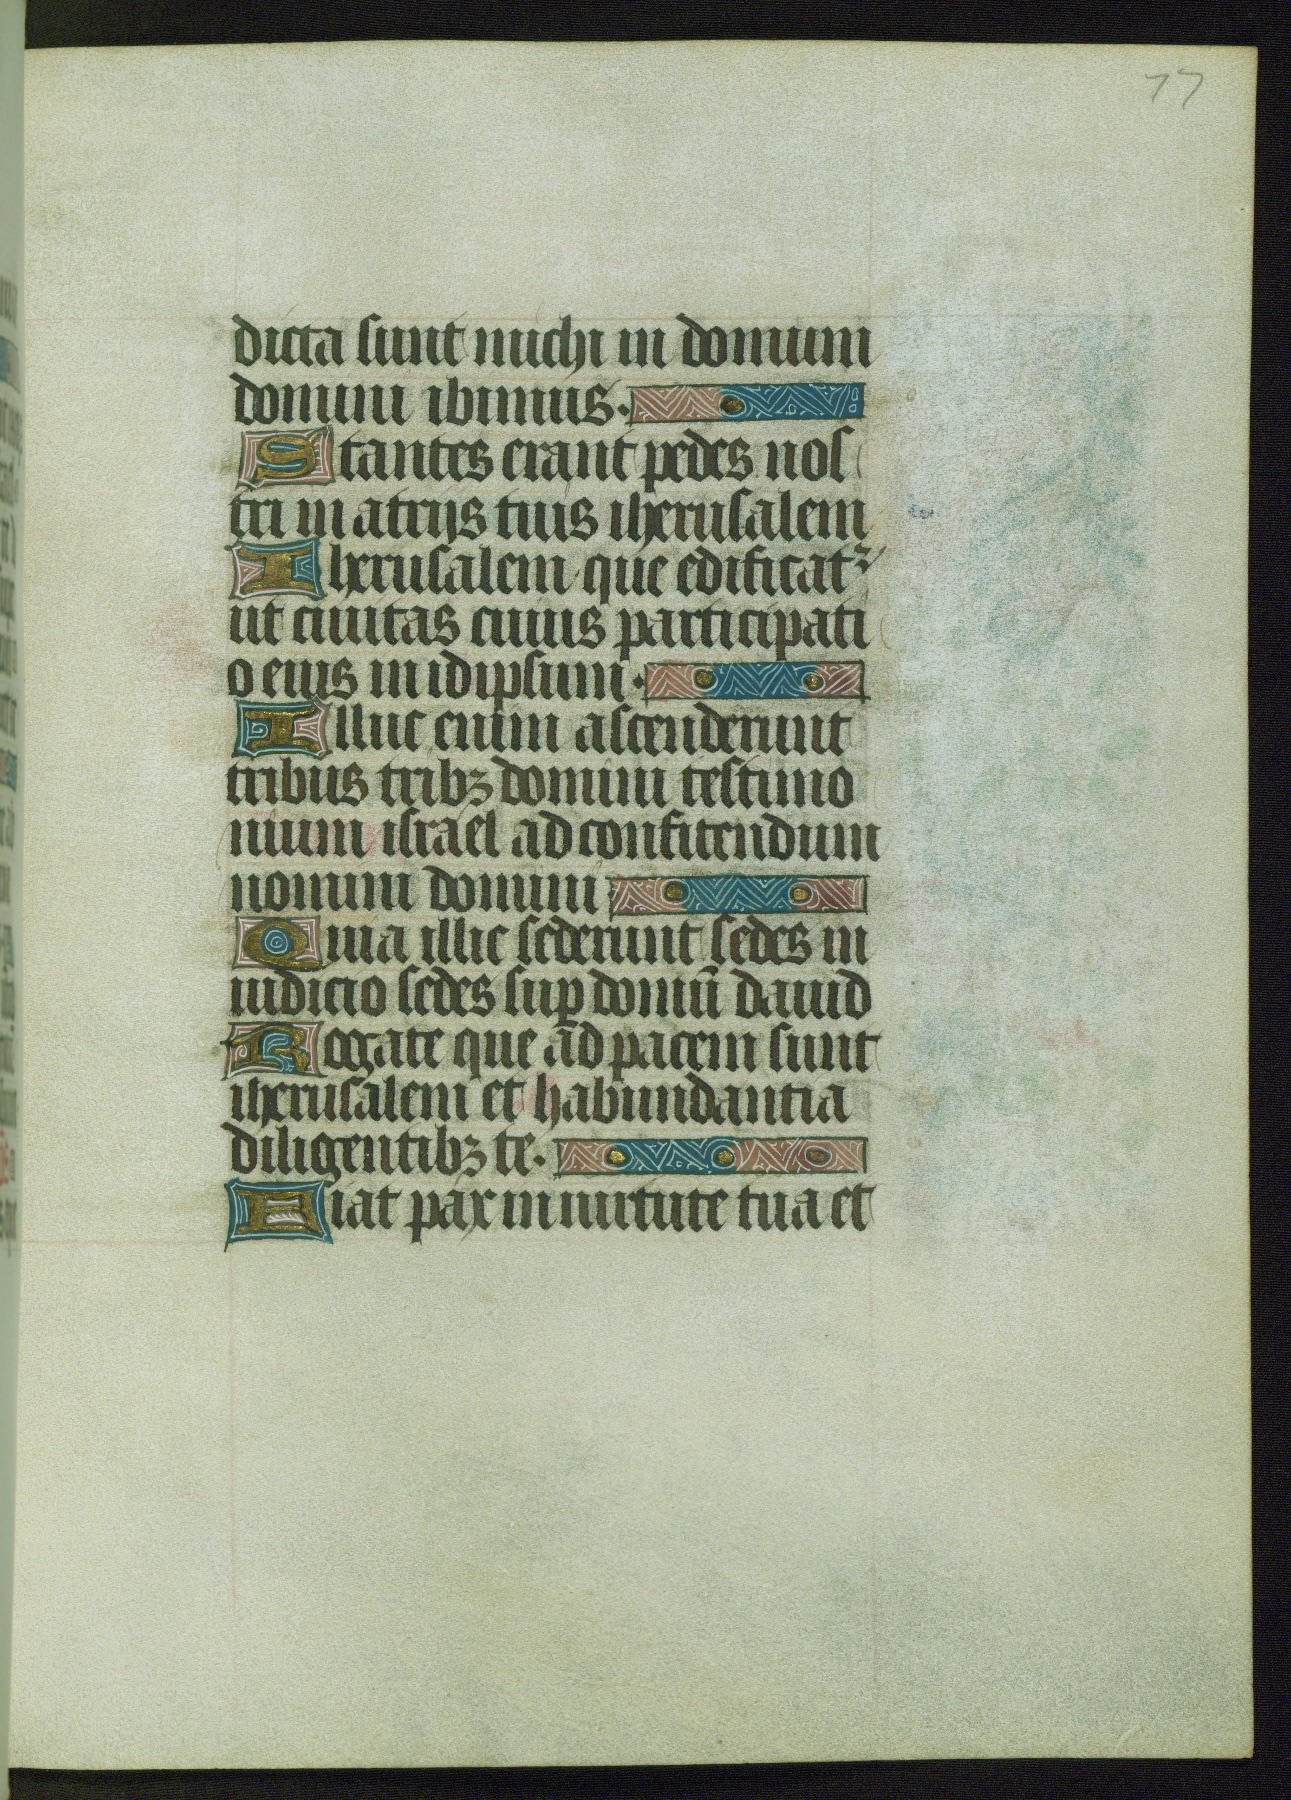 77
dicta sunt michi in domum
domini ibimus.
Stantes erant pedes nos
tri in atrijs tuis iherusalem
Iherusalem que edificatꝛ
ut ciuitas cuius participati
o eius in idipsum.
Illuc enim ascenderunt
tribus tribꝫ domini testimo
nium israel ad confitendum
nomini domini
Quia illic sederunt sedes in
iudicio sedes suꝑ domū dauid
Rogate que ad pacem sunt
iherusalem et habundantia
diligentibꝫ te.
Fiat pax in uirtute tua et